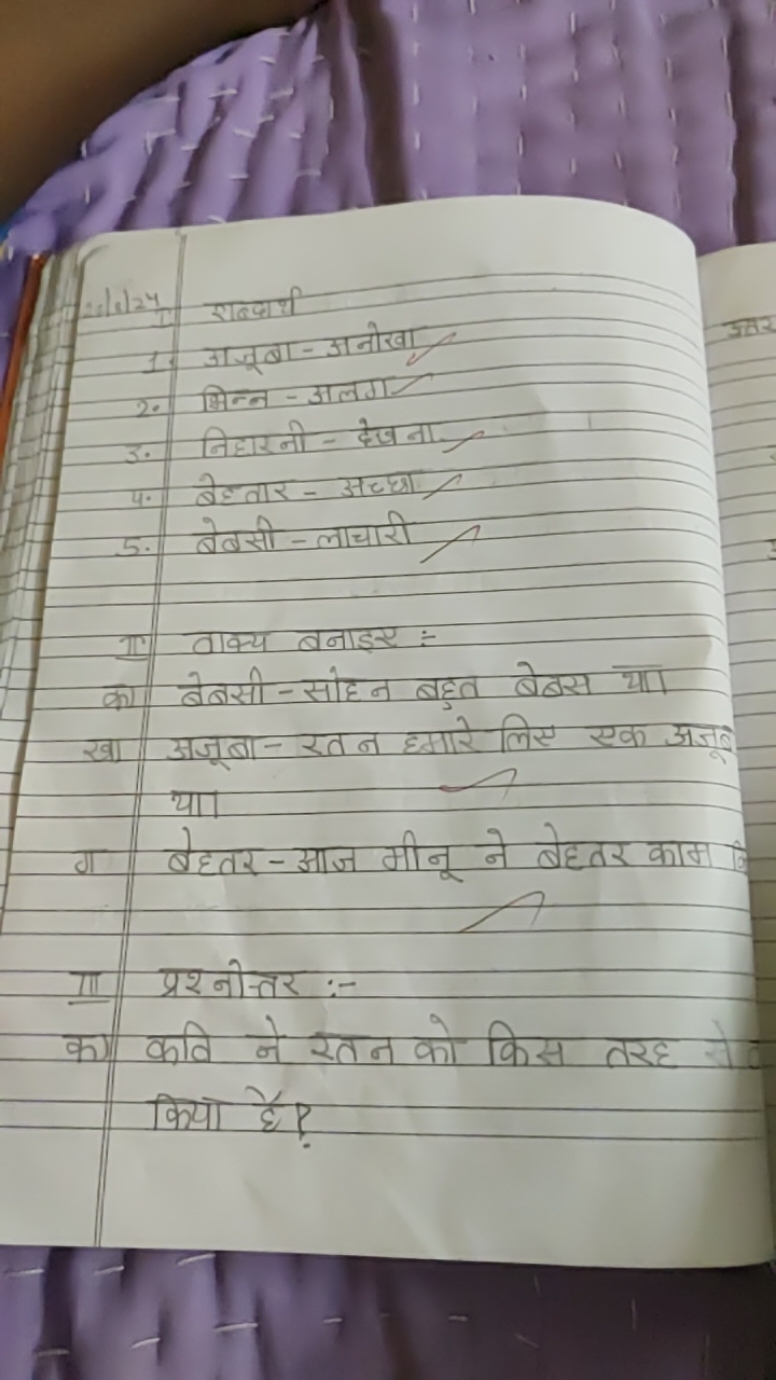 I शब्दार्थ
1. अजूबा - अनोखा
2. भिन्न - अलग
3. निहारनी - देखना
4. बेहतार - अच्छा
5. बेबसी - लाचारी
II वाक्य बनाइए :-
क) बेबसी - सोहन बहुत बेबस था।
ख) अजूबा - रतन हमारे लिए एक अजूब
था।
ग बेहतर - आज मीनू ने बेहतर काम
III प्रश्नोत्तर :-
क) कवि ने रतन को किस तरह से
किया है?
उत्तर